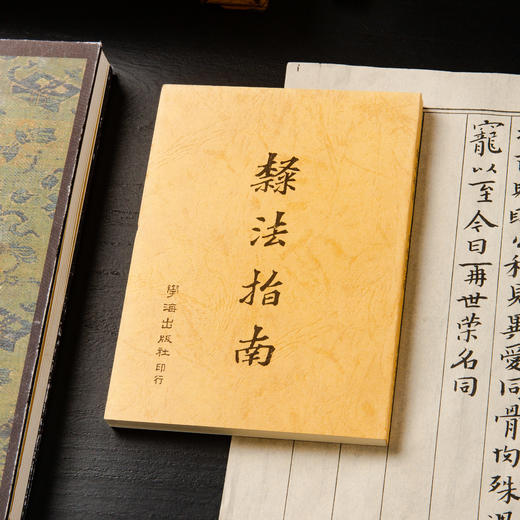 隸法指南
學海出版社印行
見異愛同骨均殊
寵以至今日再世荣名同